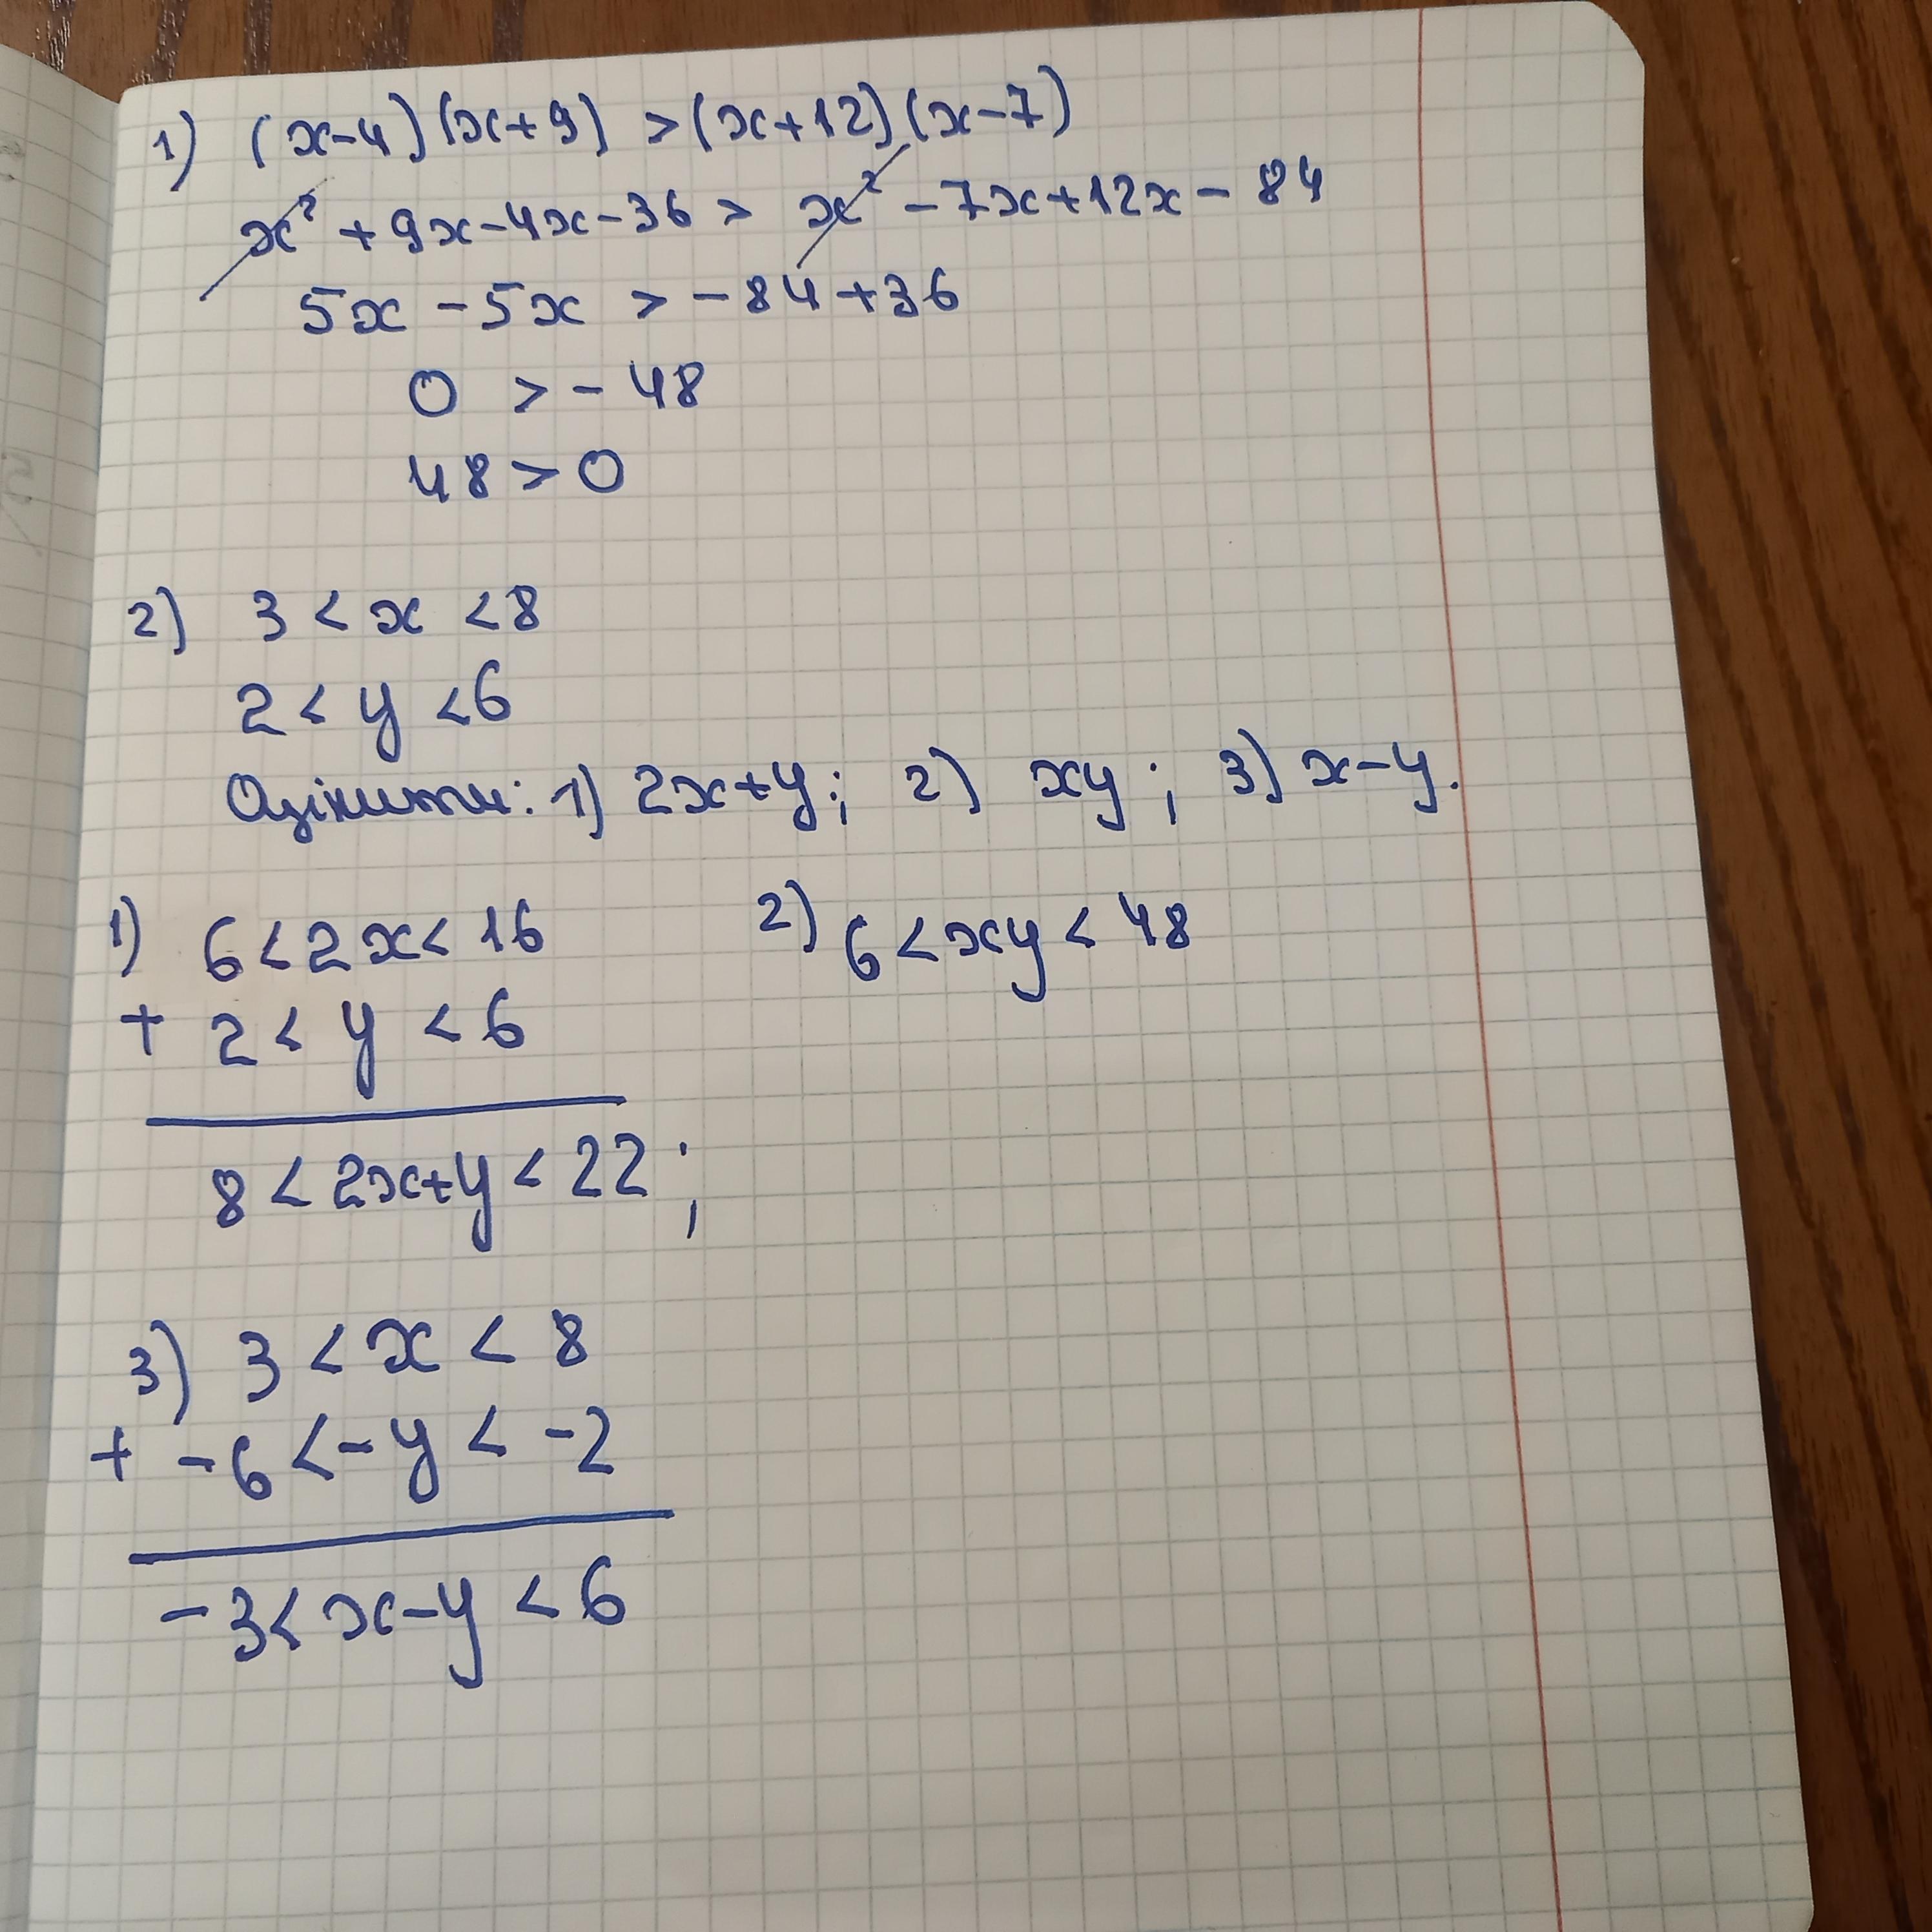 1) (x-4)(x+9) > (x+12)(x-7)
x² + 9x-4x-36 > x² -7x+12x-84
5x -5x > -84+36
0 > -48
48 > 0
2) 3 < x < 8
2 < y < 6
Оцінити: 1) 2x+y; 2) xy; 3) x-y.
1) 6<2x<16
+ 2 < y < 6
8 < 2x+y < 22;
2) 6<xy<48
3) 3 < x < 8
+ -6 < -y < -2
-3 < x-y < 6